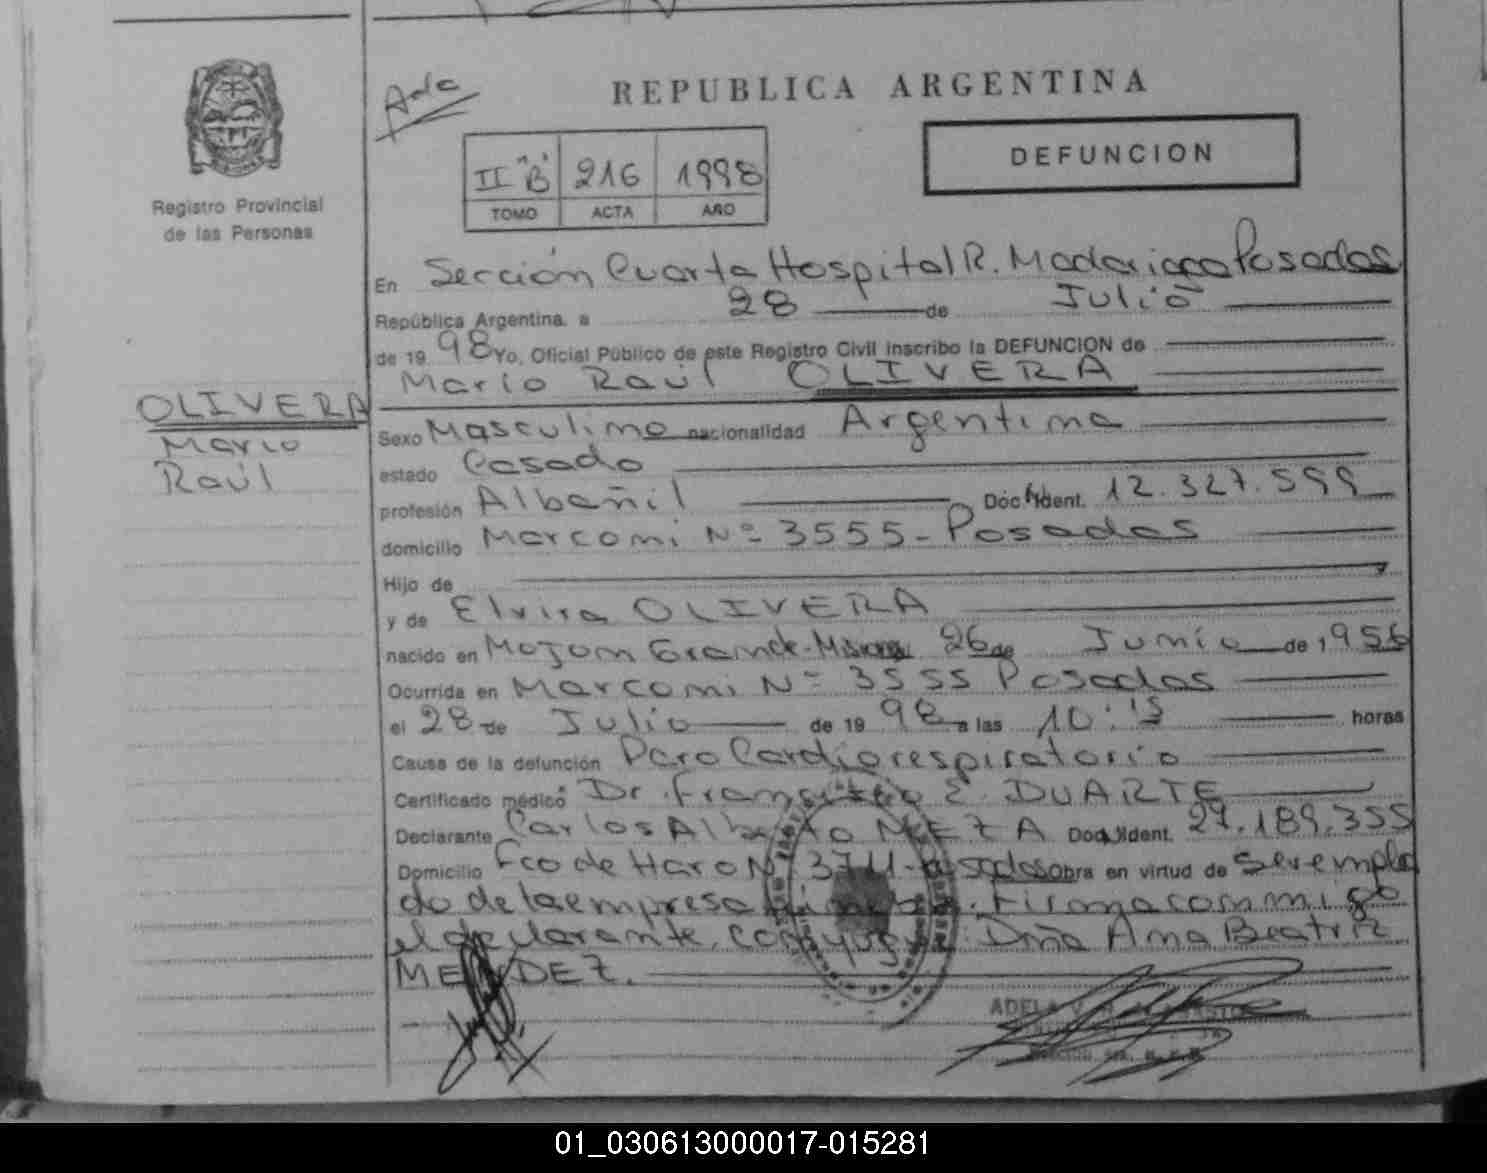 Ada
REPUBLICA ARGENTINA
DEFUNCION
II "B" 216 1998
TOMO ACTA AÑO
Registro Provincial
de las Personas
En Sección Cuarta Hospital R. Madariaga Posadas
República Argentina, a 28 de Julio
de 19 98 Yo, Oficial Público de este Registro Civil inscribo la DEFUNCION de
Mario Raúl OLIVERA
OLIVERA
Mario
Raúl
Sexo Masculino nacionalidad Argentina
estado Casado
profesión Albañil Doc. Ident. 12.327.599
domicilio Marconi Nº 3555- Posadas
Hijo de
y de Elvira OLIVERA
nacido en Mojon Grande- 26 de Junio de 1956
Ocurrida en Marconi Nº 3555 Posadas
el 28 de Julio de 19 98 a las 10:15 horas
Causa de la defunción Paro Cardiorespiratorio
Certificado médico Dr. E. DUARTE
Declarante Carlos Alberto MEZA Doc. Ident. 27.189.355
Domicilio Fco de Haro Nº Posadas obra en virtud de ser emplea
do de la empresa . Firma conmigo
el declarante, Dña Ana Beatriz
MENDEZ.
ADELA V.
01_030613000017-015281